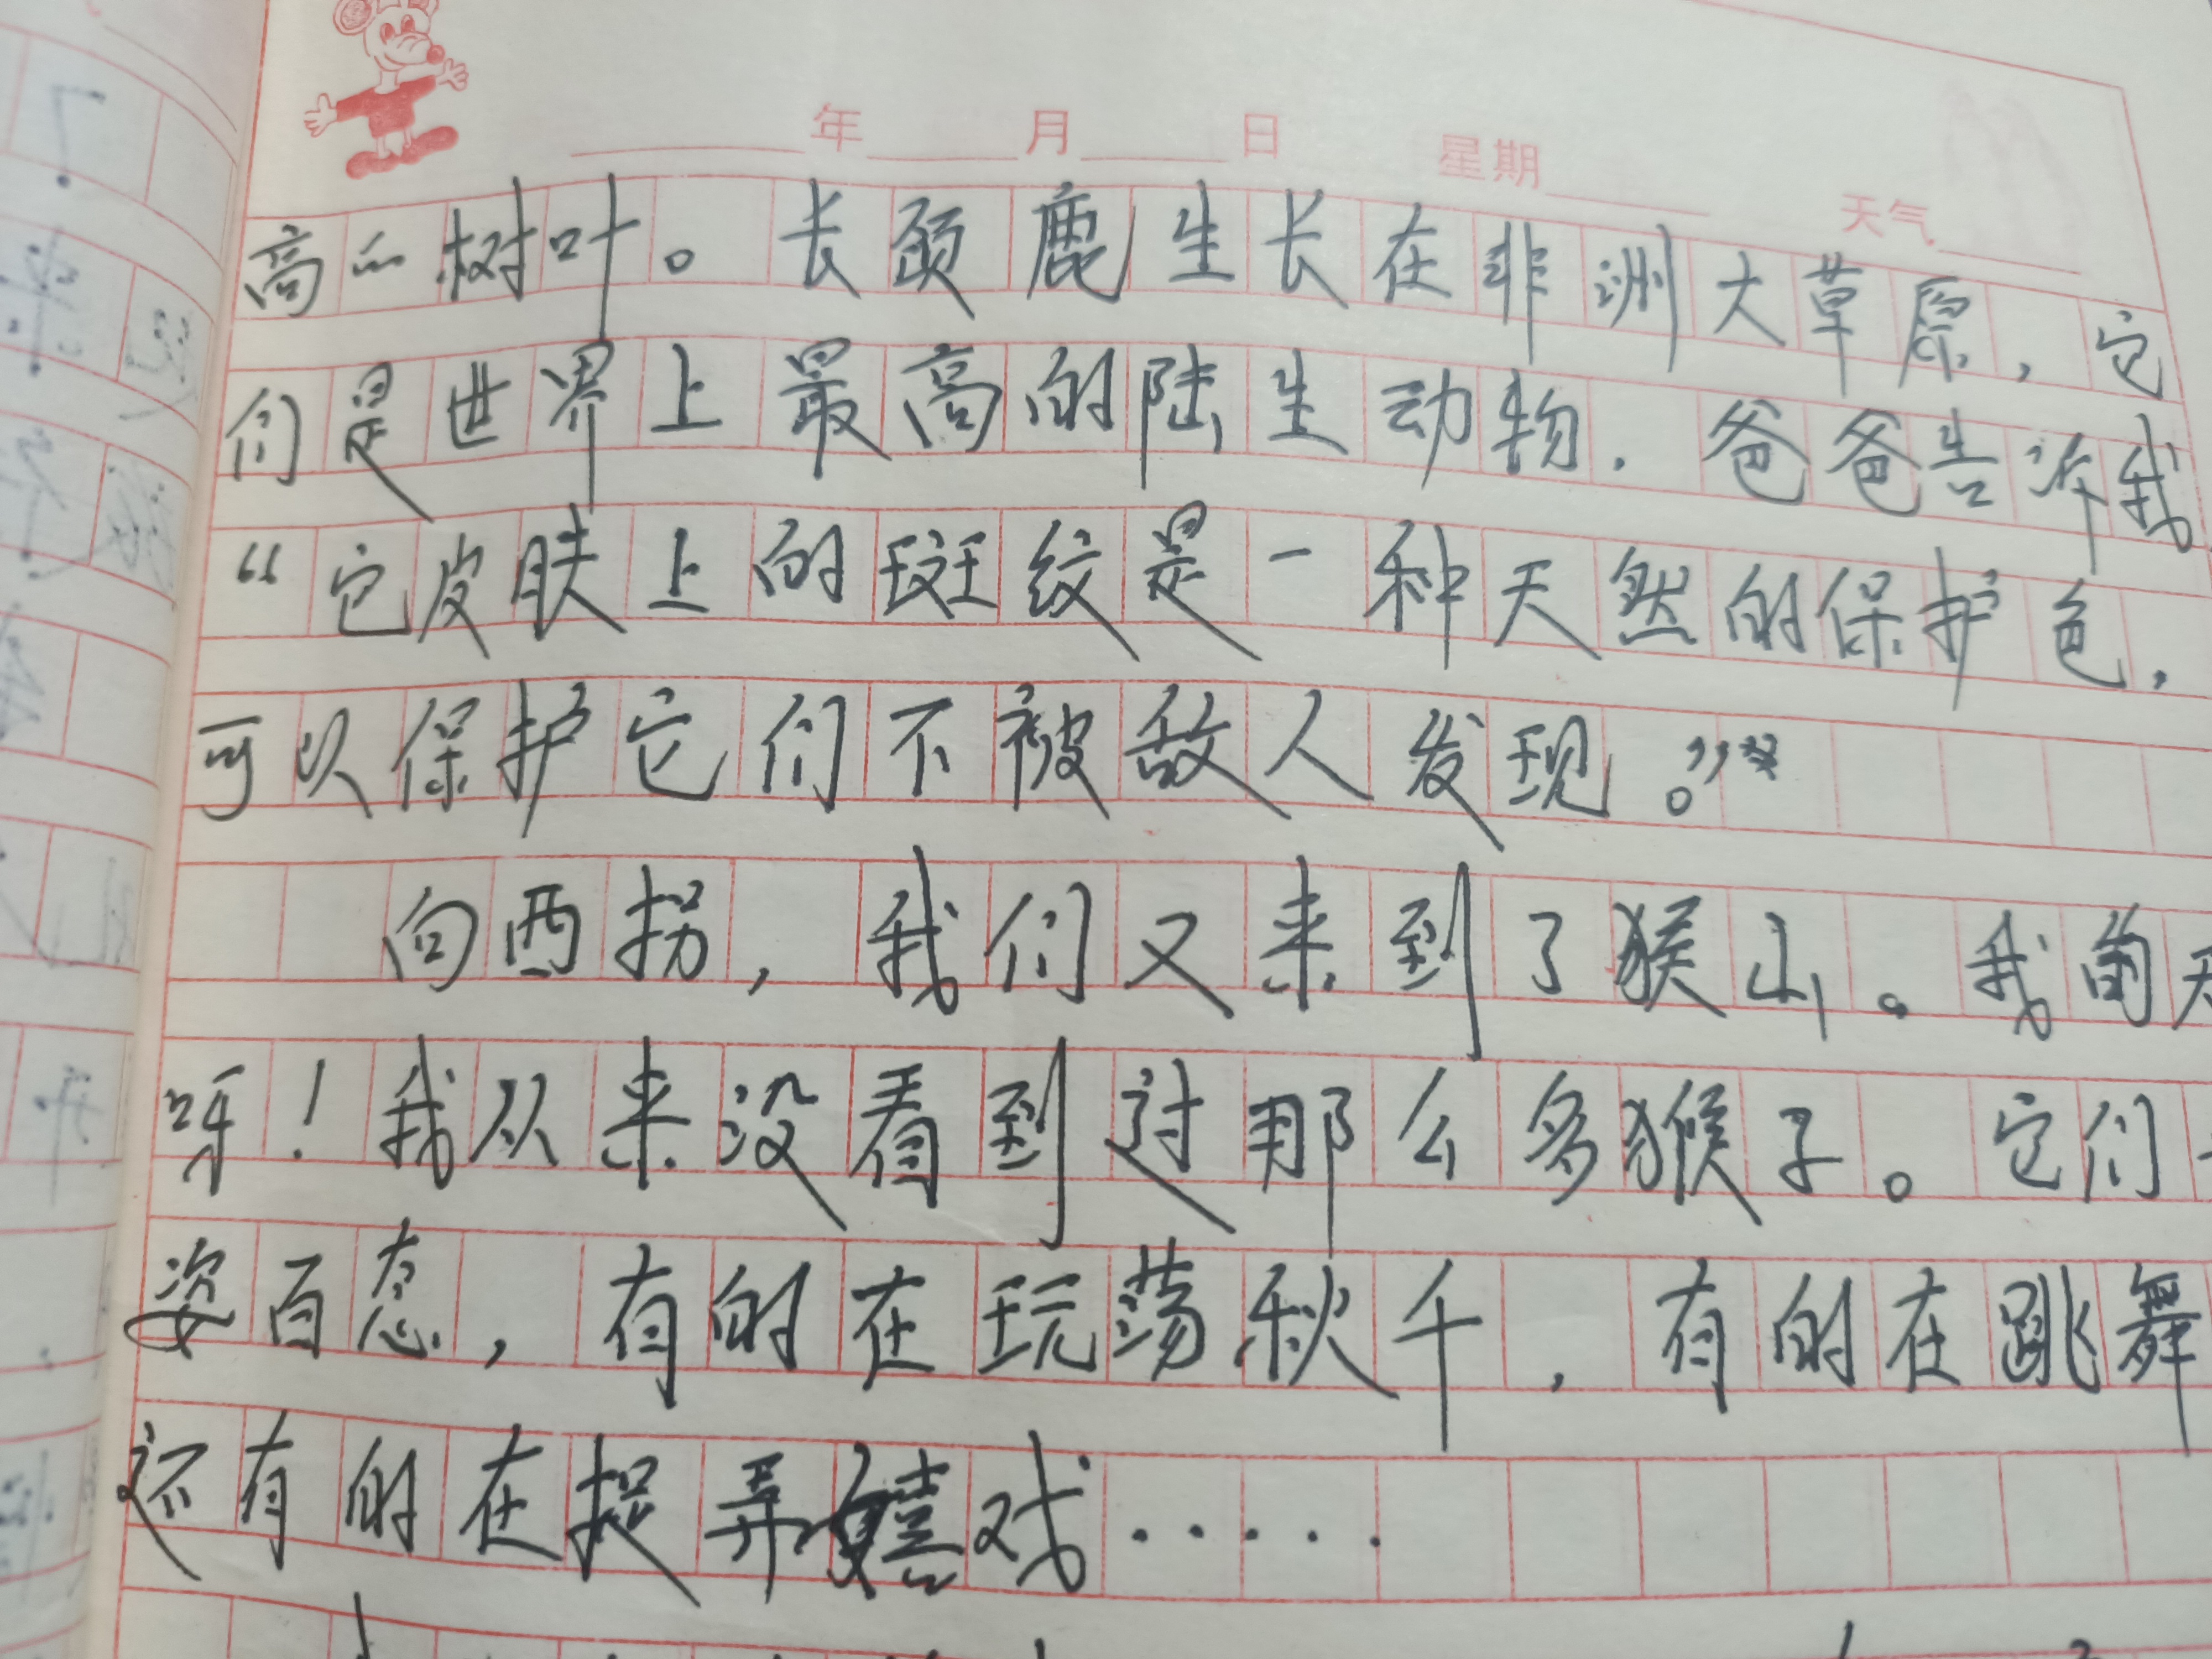 年 月 日 星期 天气
高的树叶。长颈鹿生长在非洲大草原,它
们是世界上最高的陆生动物.爸爸告诉我
“它皮肤上的斑纹是一种天然的保护色,
可以保护它们不被敌人发现。”
向西拐,我们又来到了猴山。我的天
呀!我从来没看到过那么多猴子。它们
姿百态,有的在玩荡秋千,有的在跳舞
还有的在捉弄嬉戏·····